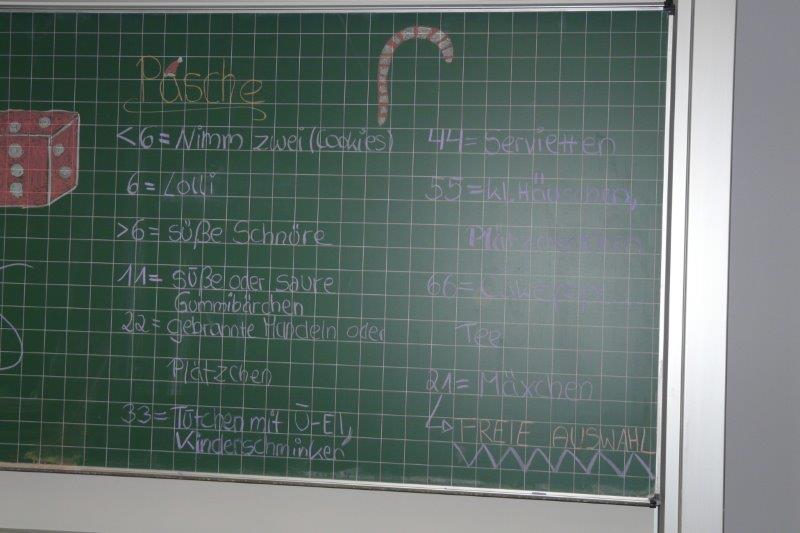 Päsche
<6=Nimm zwei (Cookies)
6=Lolli
>6=süße Schnöre
11=süße oder saure
Gummibärchen
22=gebrannte Mandeln oder
Plätzchen
33=Tütchen mit Ü-Ei,
Kinderschminken
44=Servietten
55=kl. Häuschen,
66=
Tee
21=Mäxchen
FREIE AUSWAHL